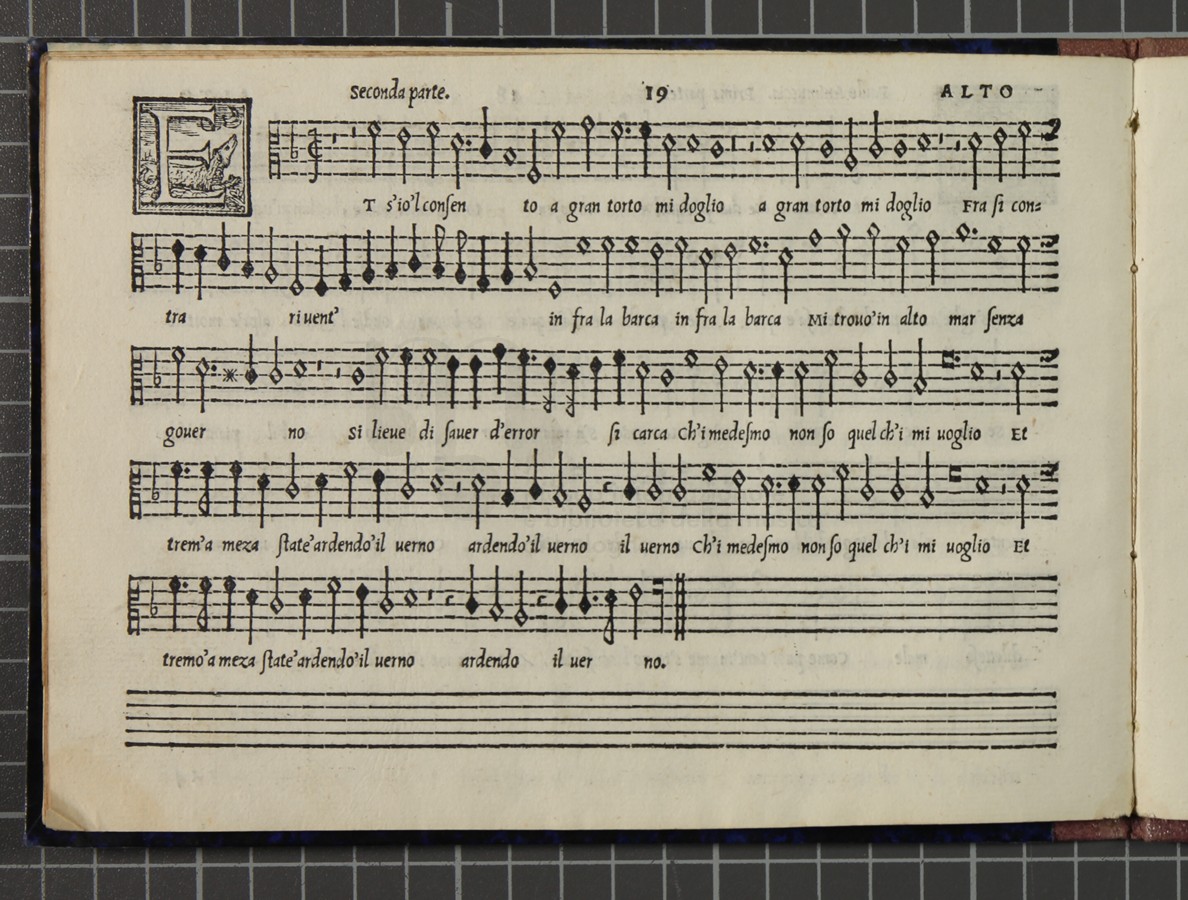 Seconda parte. 19 ALTO
ET s'io'l consen to a gran torto mi doglio a gran torto mi doglio Fra si con=
tra ri uent' in fra la barca in fra la barca Mi trouo'in alto mar senza
gouer no si lieue di sauer d'error si carca Ch'i medesmo non so quel ch'i mi uoglio Et
trem'a meza state'ardendo'il uerno ardendo'il uerno il uerno Ch'i medesmo non so quel ch'i mi uoglio Et
tremo'a meza state'ardendo'il uerno ardendo il uer no.